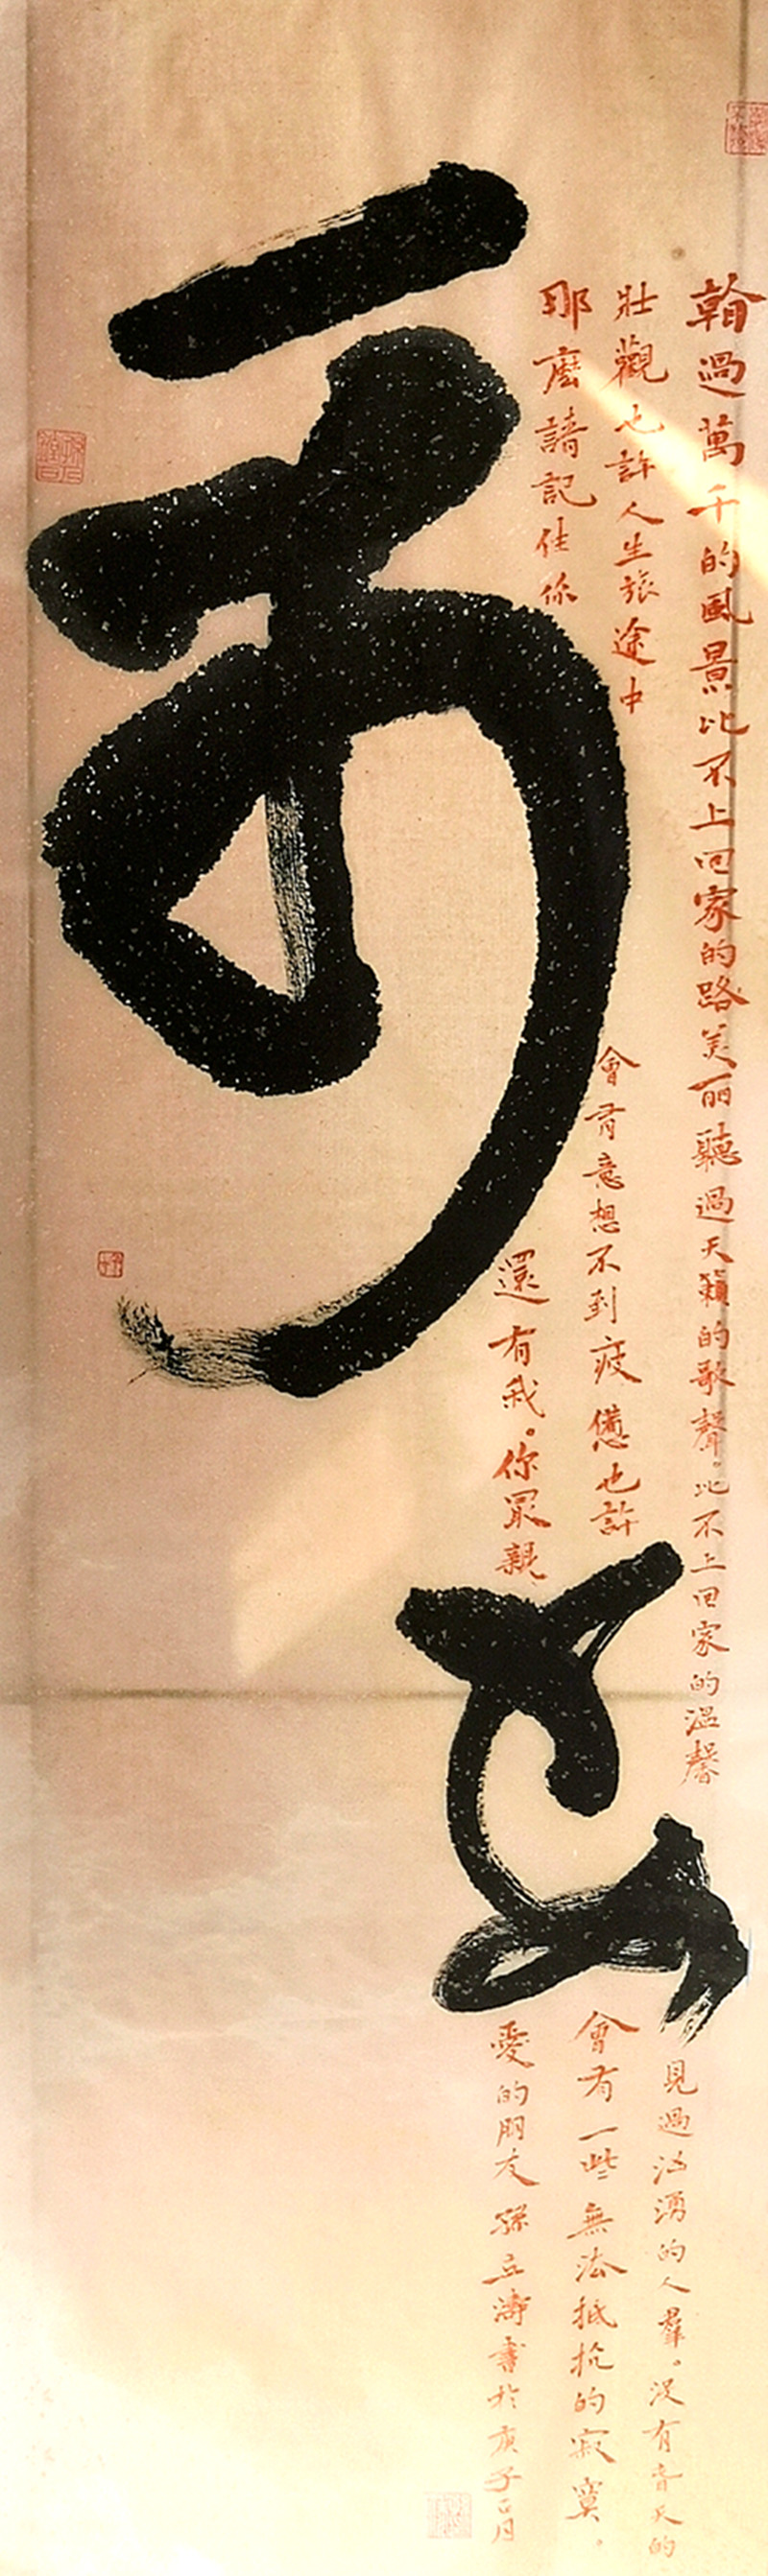 翰過萬千的風景比不上回家的路美丽聽過天籟的歌聲。比不上回家的温馨見過汹湧的人羣。没有春天的
壯觀也許人生旅途中會有意想不到疲憊也許會有一些無法抵抗的寂寞。
那麽請記住你還有我。你最親愛的朋友孫立濤書於庚子月